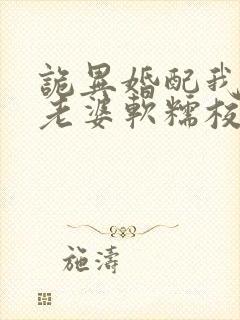 詭異婚配我
老婆軟糯极
施濤